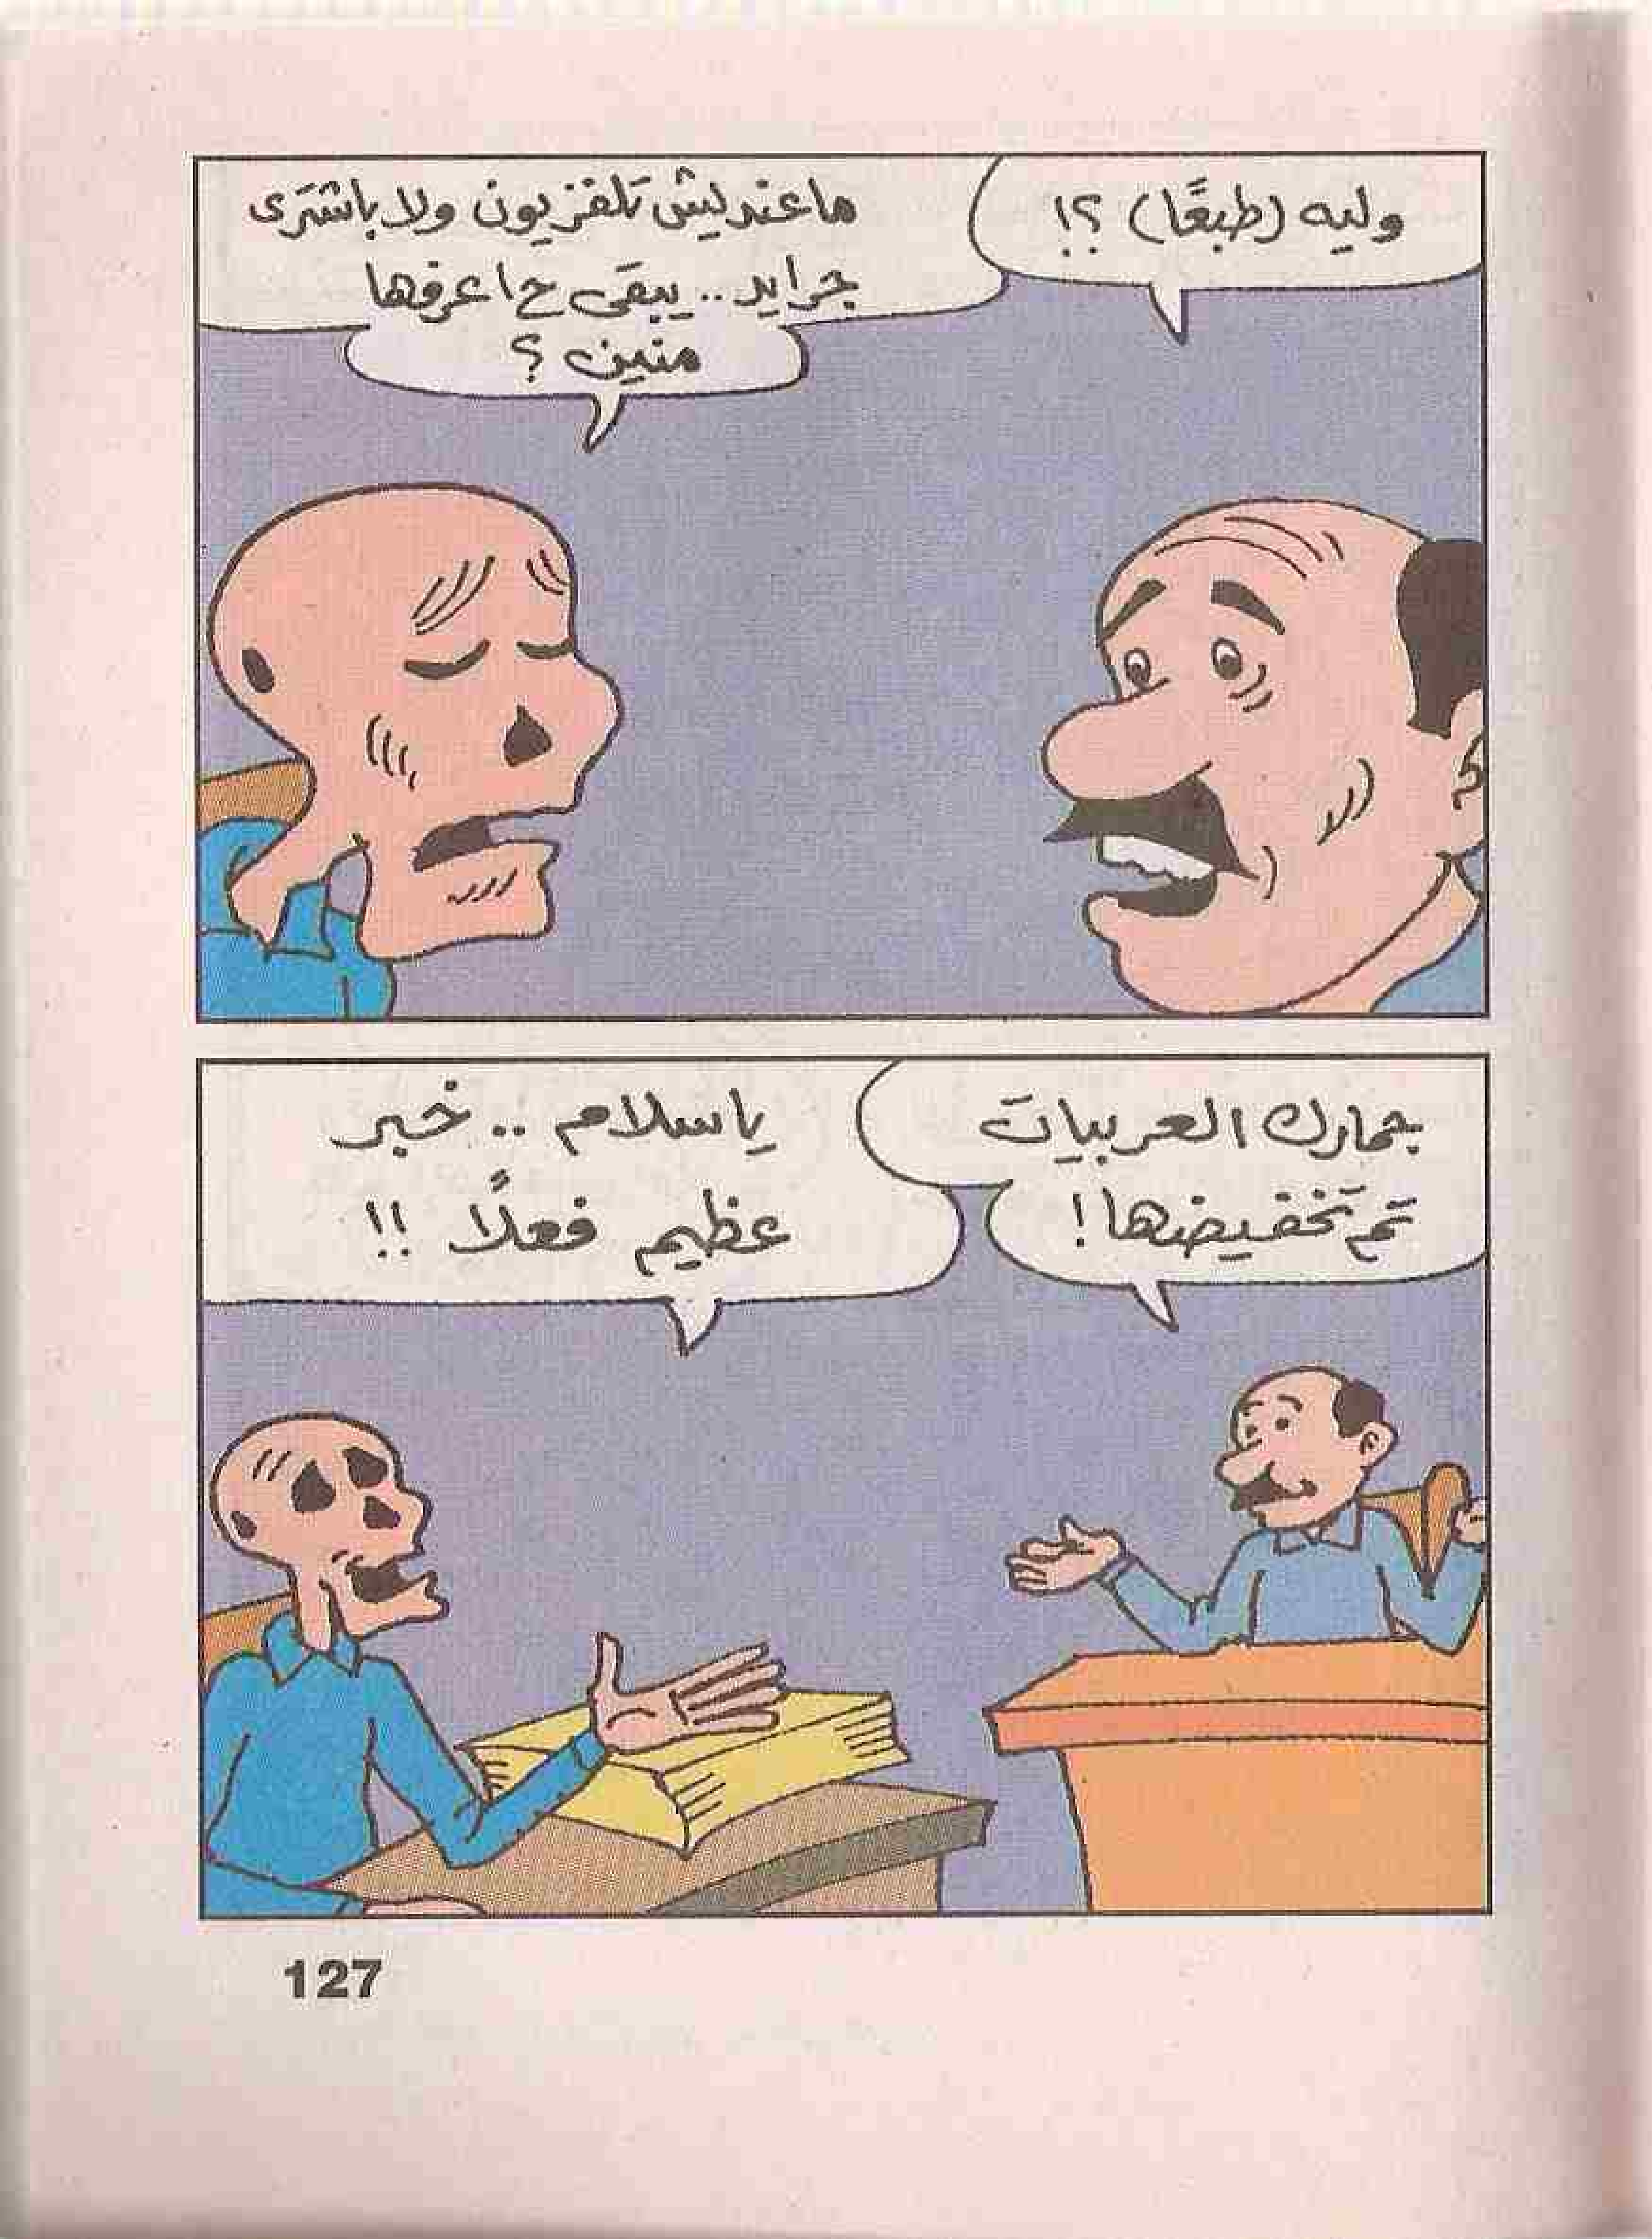 وليه (طبعًا) ؟!
ماعنديش تلفزيون ولا باشترى
جرايد .. يبقى ح اعرفها
منين ؟
جمارك العربيات
تم تخفيضها !
ياسلام .. خبر
عظيم فعلاً !!
127